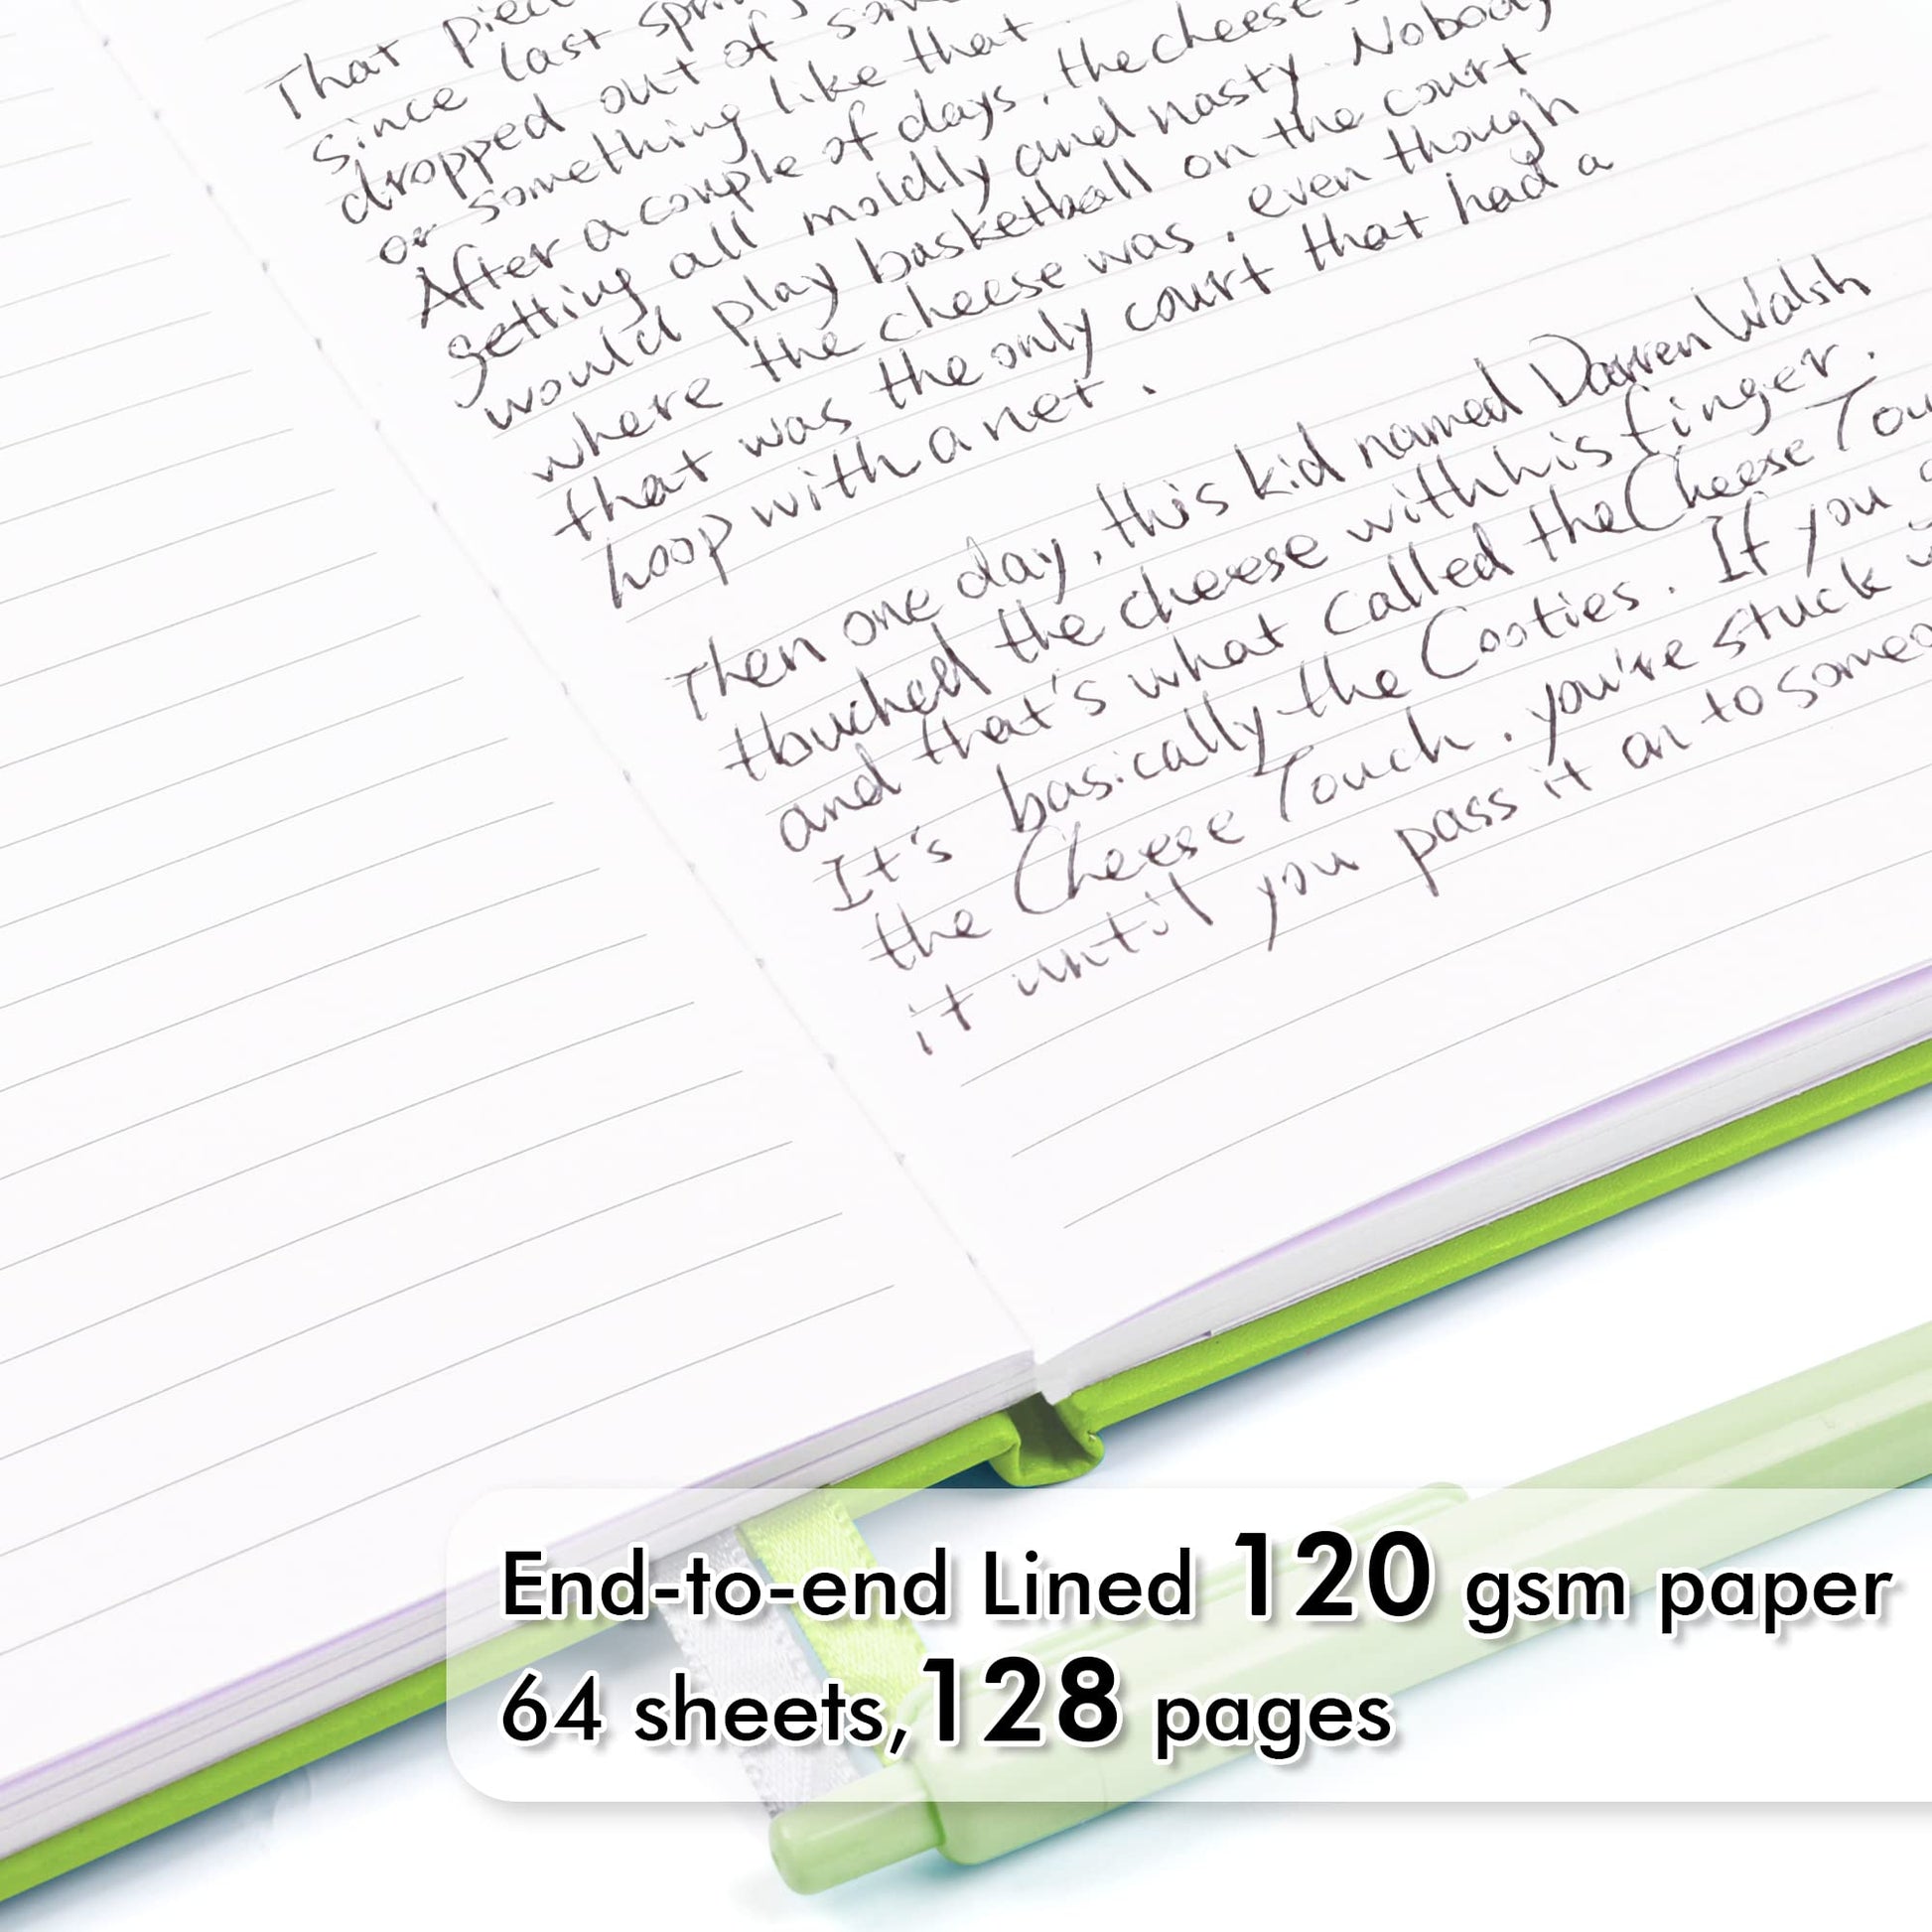 That piece
since last spring
dropped out of
or something like that.
After a couple of days, the cheese
getting all moldly and nasty. Nobody
would play basketball on the court
where the cheese was, even though
that was the only court that had a
hoop with a net.
Then one day, this kid named Darren Walsh
touched the cheese with his finger.
and that's what called the Cheese Tou
It's basically the Cooties. If you
the Cheese Touch, you're stuck
it until you pass it on to someo
End-to-end Lined 120 gsm paper
64 sheets,128 pages